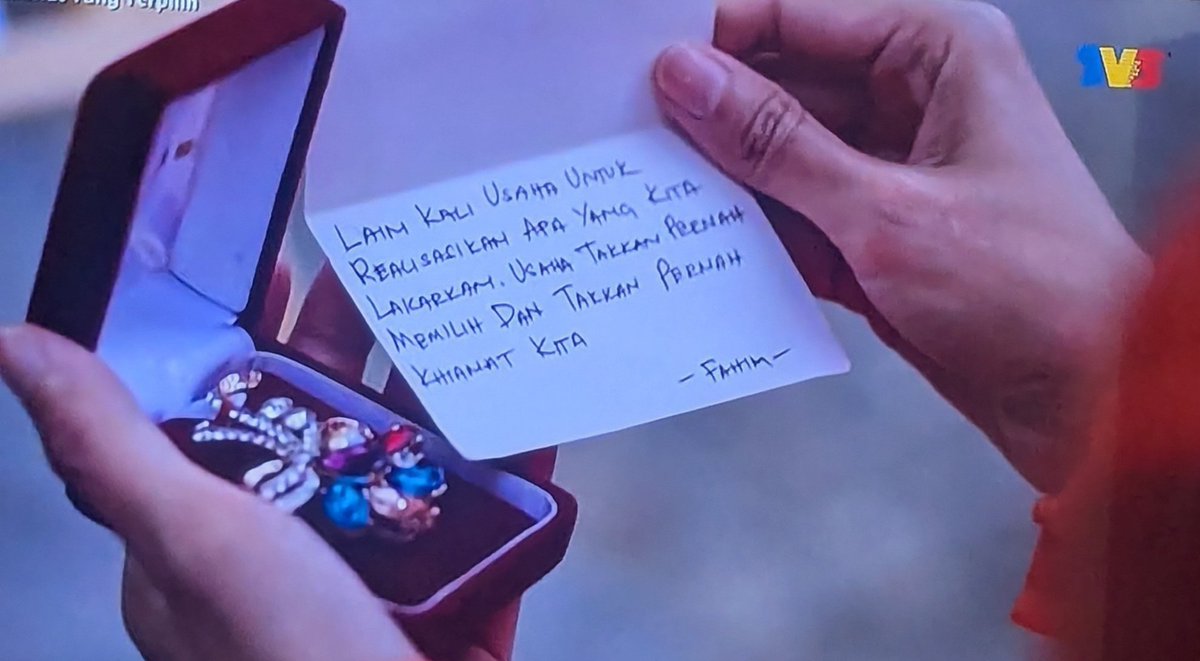 Yang Terpilih
TV3
LAIN KALI USAHA UNTUK
REALISASIKAN APA YANG KITA
LAKARKAN. USAHA TAKKAN PERNAH
MEMILIH DAN TAKKAN PERNAH
KHIANAT KITA
- FAHIM -